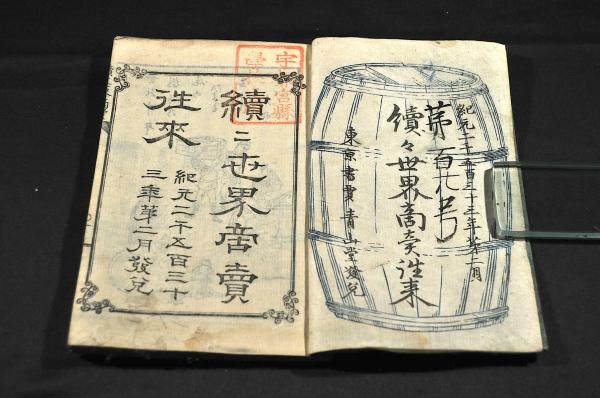 紀元二千五百三十三年第二月
第百九号
續々世界商賣往来
東京書賈青山堂發兌
宮縣
續〻世界商賣
往來
紀元二千五百三十
三年第二月發兌